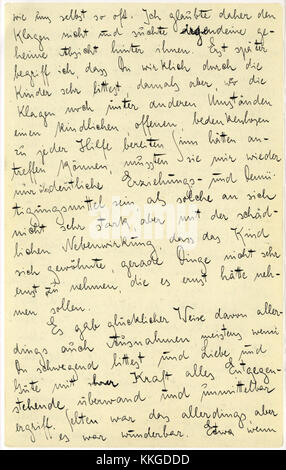 wie uns selbst so oft. Ich glaubte daher den
Klagen nicht und suchte irgendeine ge-
heime Absicht hinter ihnen. Erst später
begriff ich, dass Du wirklich durch die
Kinder sehr littest, damals aber, wo die
Klagen noch unter anderen Umständen
einen kindlichen, offenen bedenkenlosen
zu jeder Hilfe bereiten Sinn hätten an-
treffen können, mussten sie mir wieder
nur überdeutliche Erziehungs- und Demü-
tigungsmittel sein, als solche an sich
nicht sehr stark aber mit der schäd-
lichen Nebenwirkung, dass das Kind
sich gewöhnte, gerade Dinge nicht sehr
ernst zu nehmen, die es ernst hätte neh-
men sollen.
Es gab glücklicher Weise davon aller-
dings auch Ausnahmen meistens wenn
Du schweigend littest und Liebe und
Güte mit ihrer Kraft alles Entgegen-
stehende überwand und unmittelbar
ergriff. Selten war das allerdings aber
es war wunderbar. Etwa wenn
alamy
Image ID: BKKGDDD
www.alamy.com